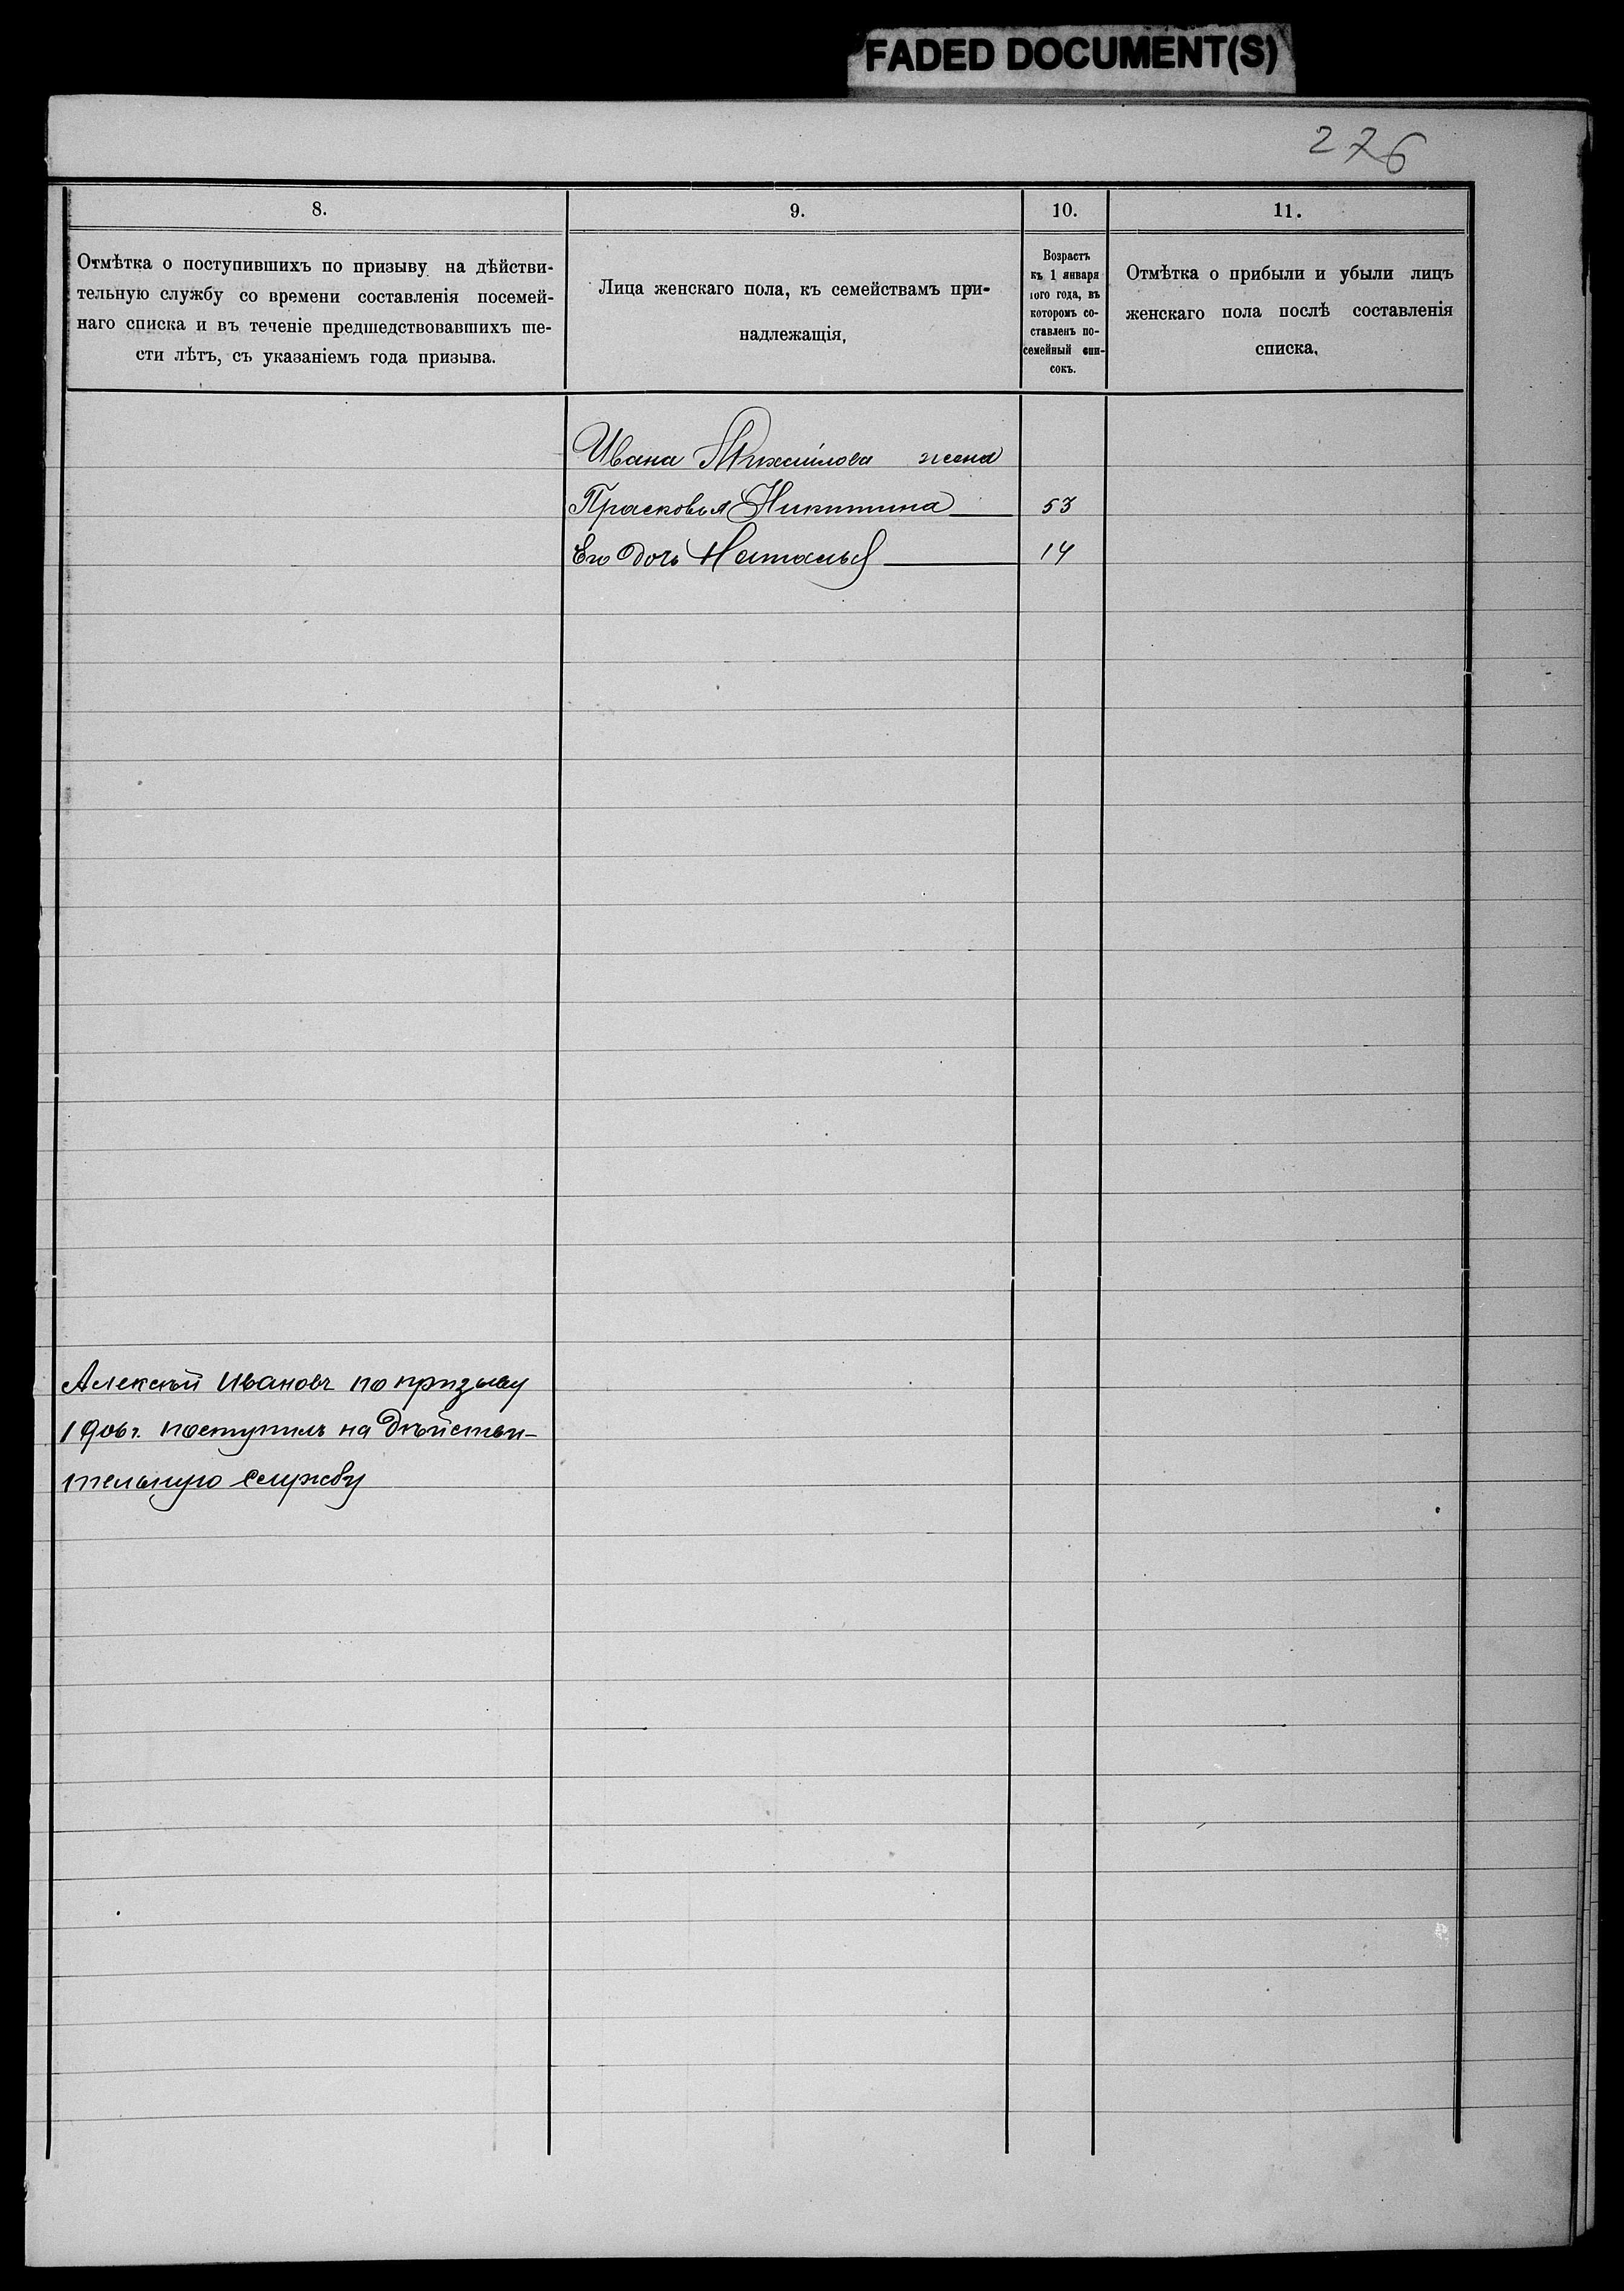 FADED DOCUMENT(S)
276
8.
9.
10.
11.
Отмѣтка о поступившихъ по призыву на дѣйстви-
тельную службу со времени составленія посемей-
наго списка и въ теченіе предшедствовавшихъ ше-
сти лѣтъ, съ указаніемъ года призыва.
Лица женскаго пола, къ семействамъ при-
надлежащія.
Возрастъ
къ 1 января
того года, въ
которомъ со-
ставленъ по-
семейный спи-
сокъ.
Отмѣтка о прибыли и убыли лицъ
женскаго пола послѣ составленія
списка.
Ивана Михайлова жена
Прасковья Никитина 53
Его дочь Наталья 14
Алексѣй Ивановъ по призыву
1906 г. поступилъ на дѣйстви-
тельную службу